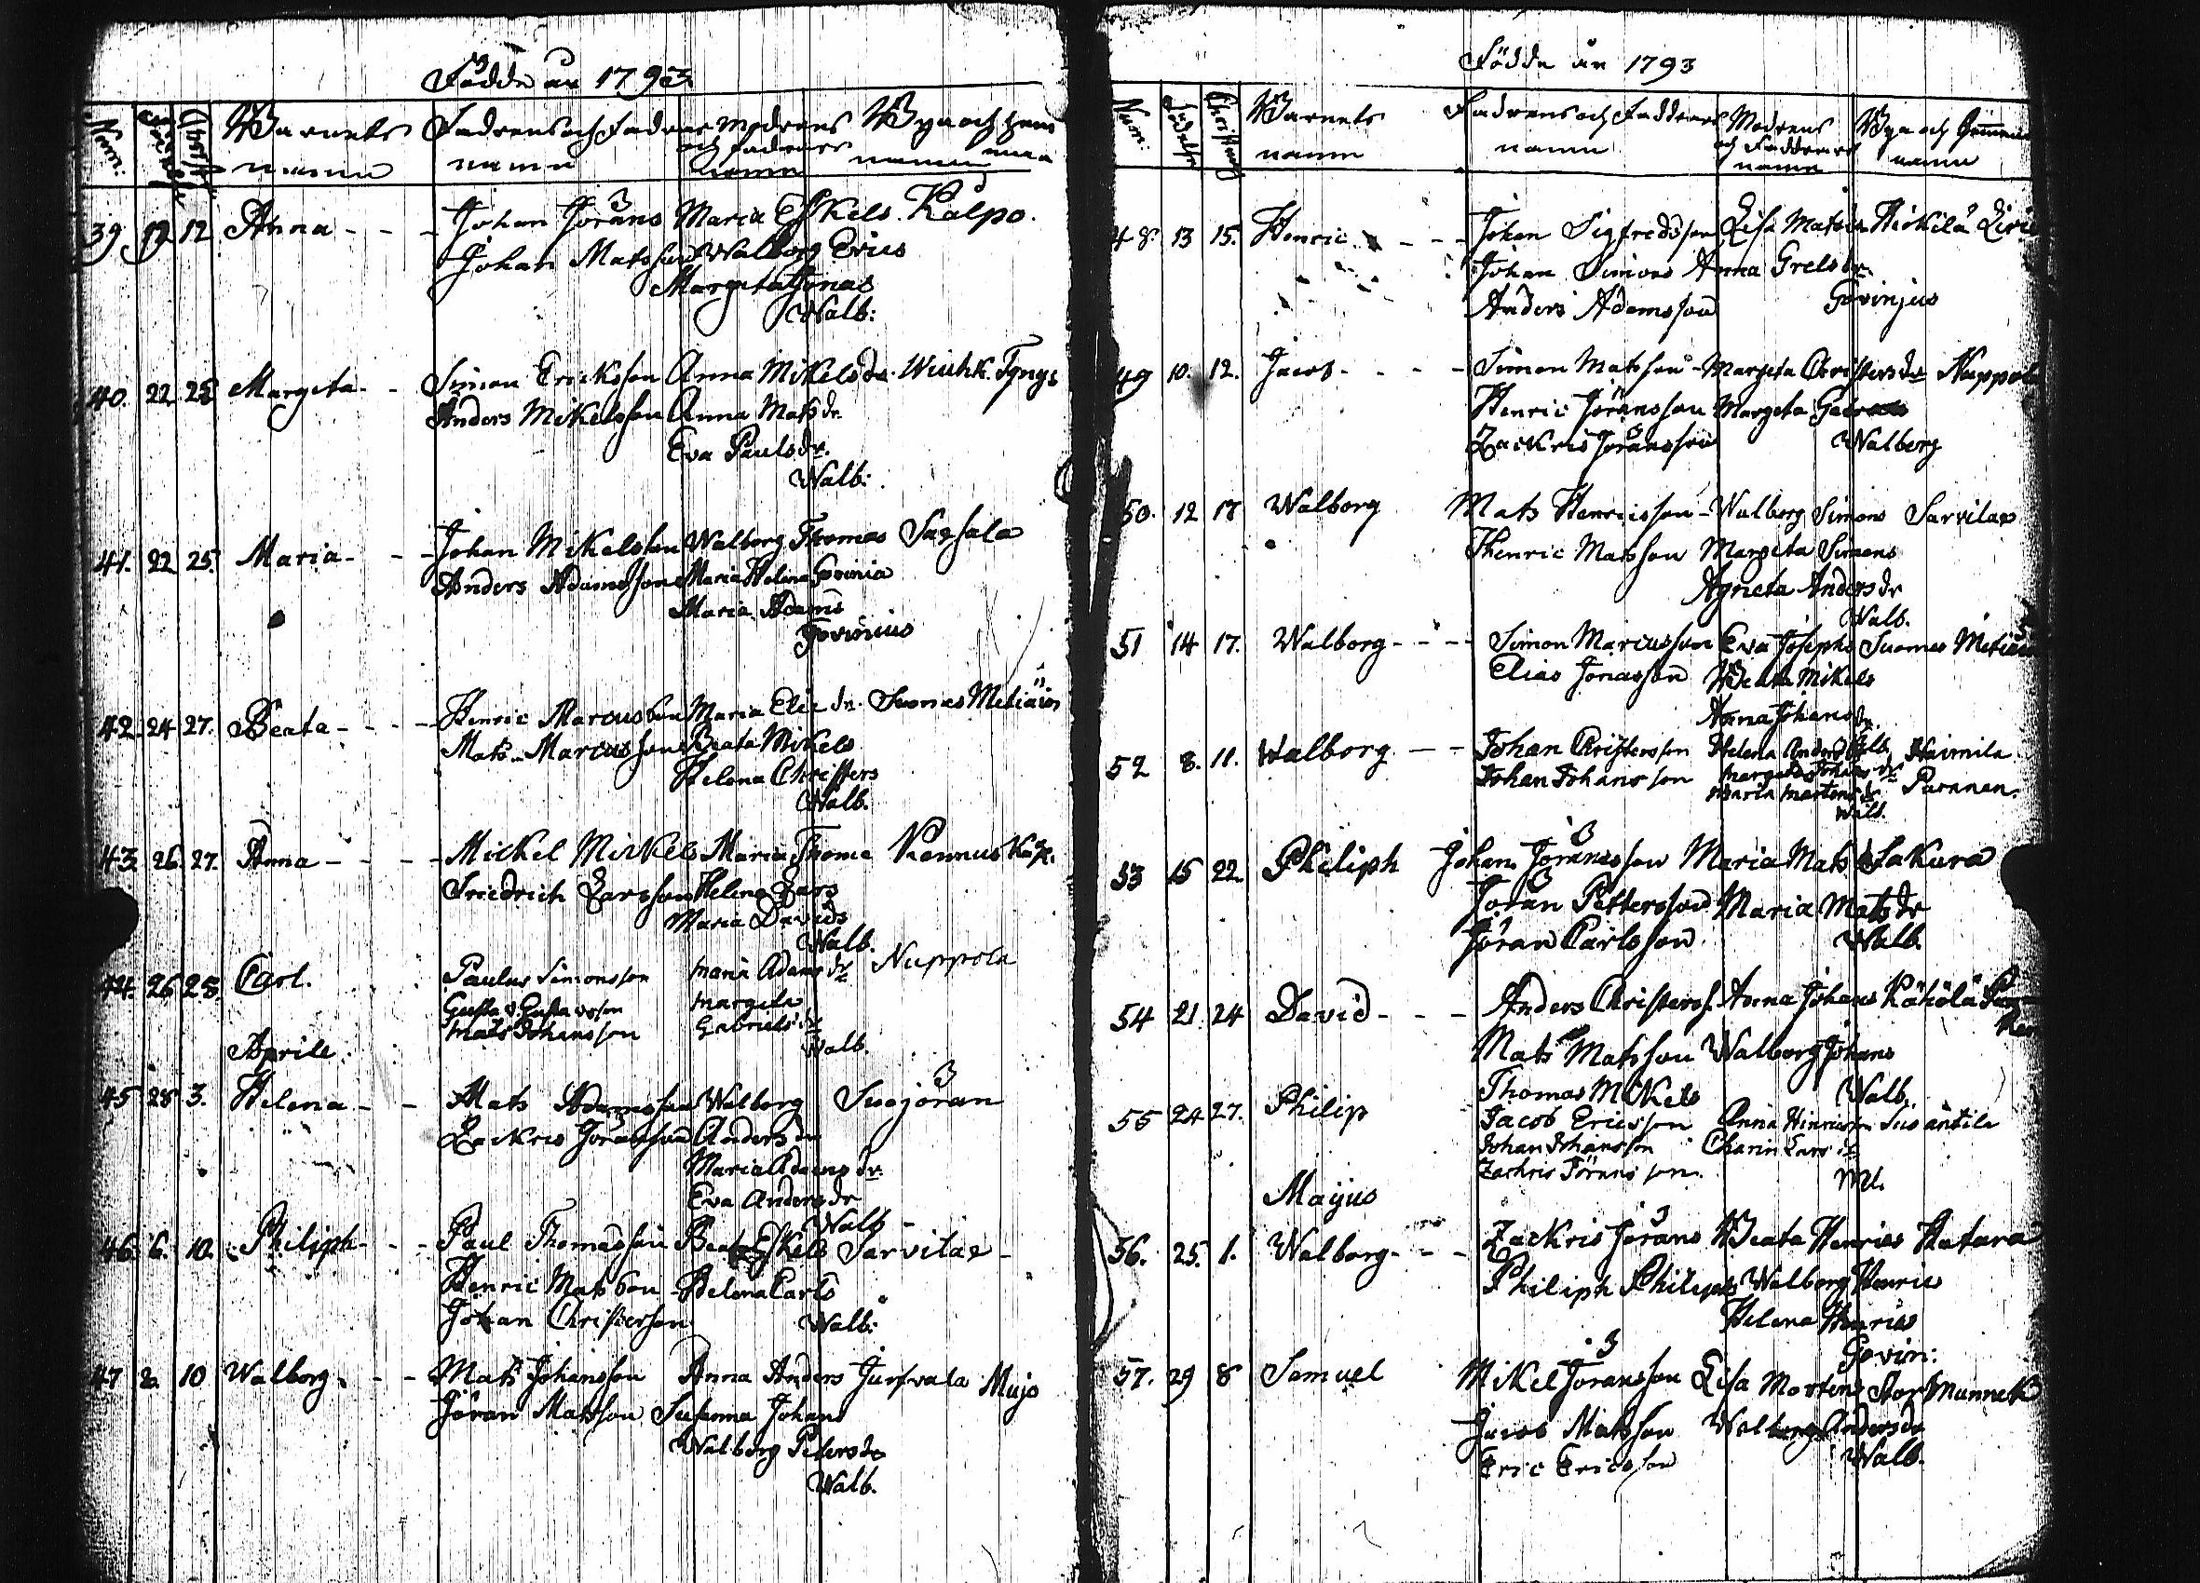 Födde år 1793
Num: Födelse Christn: Barnets namn Fadrens och Faddrar namn Modrens och Faddrars namn By och Hemmans namn
39 12 12 Anna - - - Johan Jörans Maria Eskels. Kälpo.
Johan Matsson Walborg Erics
Margeta Jonas
Walb:
40. 22 25 Margeta - - Simon Ericksson Anna Mikels dr. Wiuhk. Tyngs
Anders Mikelsson Anna Mats dr.
Eva Pauls dr.
Walb:
41. 22 25. Maria - - - Johan Mikelsson Walborg Thomas Saxsala
Anders Adamsson Maria Helena Govinia
Maria Adams
Govinius
42. 24 27. Beata - - - - Henric Marcusson Maria Elie dr. Suomes Metiäin
Mats Marcusson Beata Mikels
Helena Christers
Walb.
43. 26. 27. Anna - - - - Mickel Mickels Maria Thome Rannus Käk.
Friedrich Larsson Helena Lars
Maria Davids
Walb.
44. 26 28 Carl. Paulus Simonsson Maria Adams dr Nuppola
Gustav Gustavsson Margeta
Mats Johansson Gabriels dr
Walb.
Aprile.
45 28 3. Helena - - Mats Adamsson Walborg Suojöran
Zackris Joransson Anders dr
Maria Adams dr.
Eva Anders dr
Walb
46. 6. 10. Philiph - - - Paul Thomasson Beata Eskels Sarvilax
Henric Matsson Helena Carls
Johan Christersson Walb:
47 2. 10 Walborg. - - - Mats Johansson Anna Anders Jurvala Mujo
Jöran Matsson Susanna Johans
Walborg Peters dr
Walb.
Födde år 1793
Num: Födelse Christning Barnets namn Fadrens och Faddrars namn Modrens och Faddrars namn By och Hemmans namn
48. 13 15. Henric - - - Johan Sigfredsson Lisa Mats dr Heikilä
Johan Simons Anna Grels dr.
Anders Adamsson Govinjus
49 10. 12. Jacob - - - - Simon Matsson - Margeta Christers dr Nuppola
Henric Jöransson Margeta
Zackris Jöransson Walborg
50. 12 17 Walborg Mats Henricsson - Walborg Simons Sarvilax
Henric Matsson Margeta Simons
Agneta Anders dr
Walb.
51 14 17. Walborg - - - Simon Marcusson Eva Josephs Suomes Metiäin
Elias Jonasson Beata Mikels
Anna Johans dr.
Walb.
52 8. 11. Walborg - - Johan Christersson Helena Anders Haimila
Johan Johansson Margeta Johans dr Paranen.
Maria Martens dr
Walb.
53 15 22. Philiph Johan Jöransson Maria Mats dr Sakura
Jöran Pettersson Maria Mats dr
Jöran Carlsson Walb.
54 21. 24 David - - - Anders Christerss. Anna Johans Kähölä
Mats Matsson Walborg Johans
Thomas Mikels Walb.
55 24 27. Philip Jacob Ericsson Anna Hinricss Susäntila
Johan Johansson Charin Lars dr
Zachris Jöransson.
Majus
56. 25. 1. Walborg - - - Zackris Jörans Beata Henrics Hatara
Philiph Philips Walborg Henric
Helena Henrics
Govin:
57. 29 8 Samuel Mikel Jöransson Lisa Mortens Stor Munneck
Jacob Matsson Walborg Anders dr
Eric Ericsson Walb.